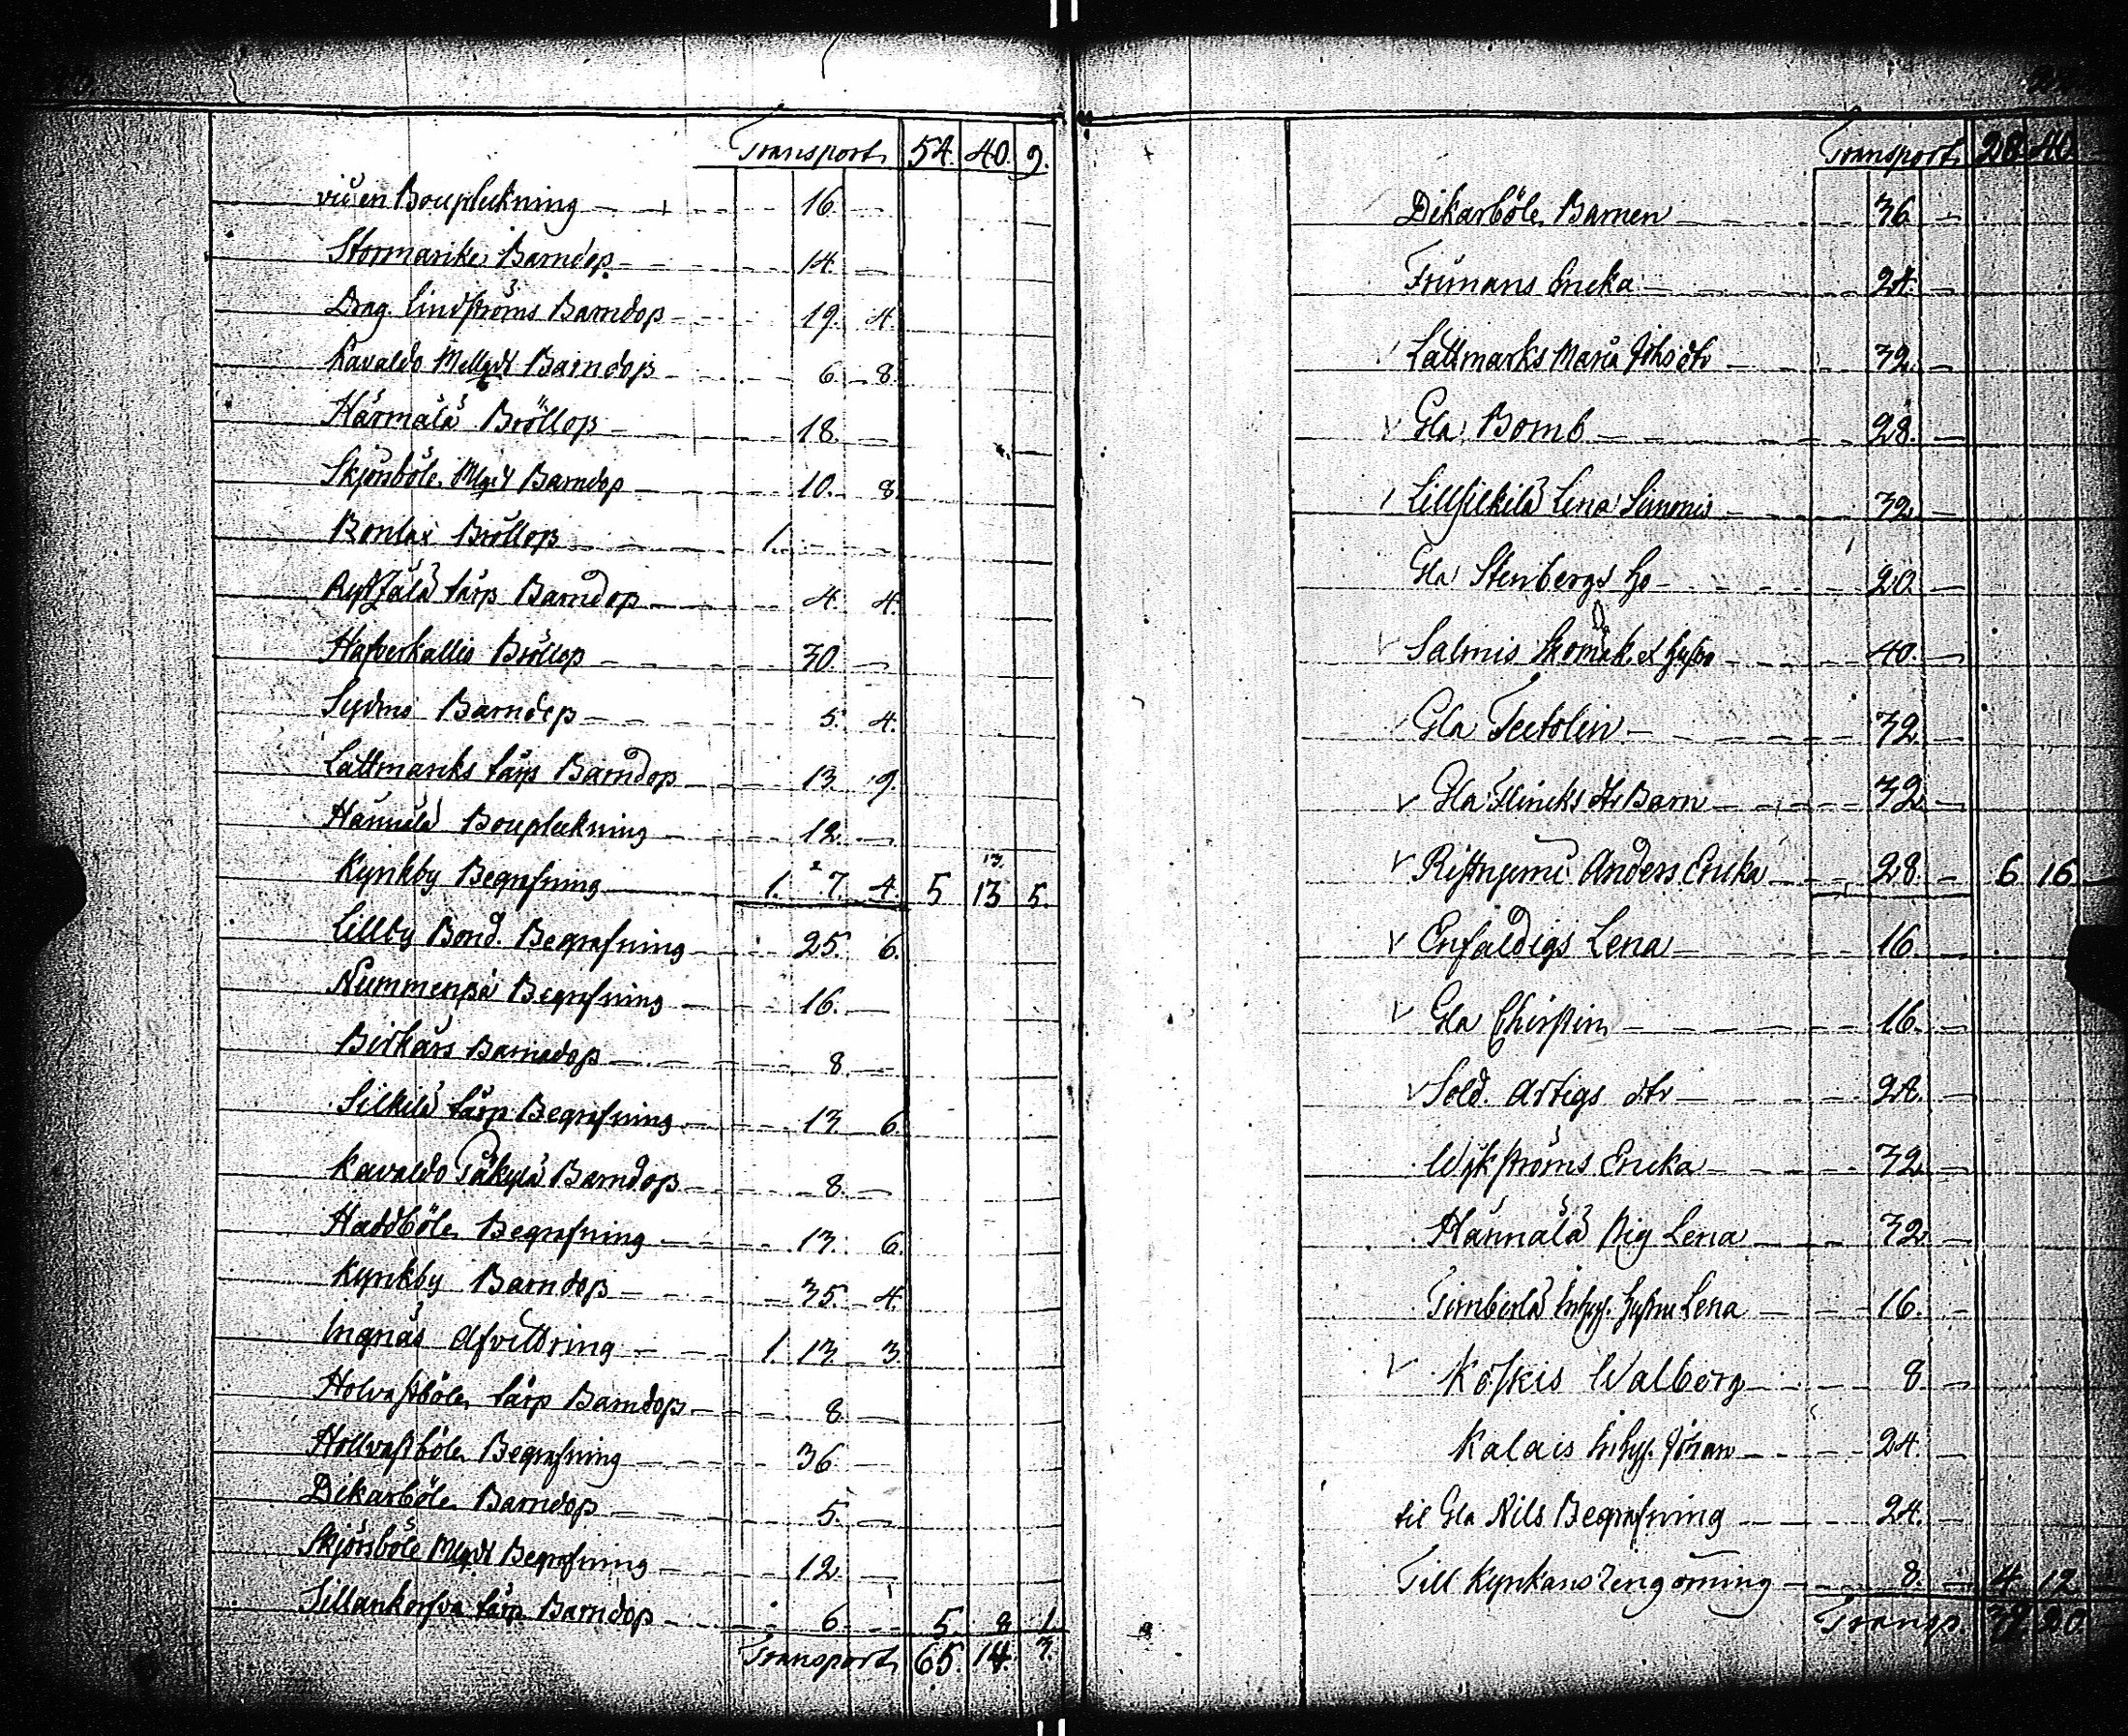 Transport 54. 40. 9.
vid en Boupteckning 16. —
Stormarike Barndop 14. —
Drag. Lindströms Barndop 19. 4.
Kavaldo Mellgdt Barndop 6. 8.
Härmälä Bröllop 18. —
Skjörsböle Mlgdt Barndop 10. 8.
Bonlax Bröllop 1. — —
torp Barndop 4. 4.
Hafverkallio Bröllop 30. —
Sydmo Barndop 5. 4.
Lattmarks torp Barndop 13. 9.
Hännälä Boupteckning 12. —
Kyrkby Begrafning 1. 7. 4. 5 13 5.
Lillby Bond. Begrafning 25. 6.
Nummenpä Begrafning 16. —
Birkärs Barnedop 8. —
Silkilä torp Begrafning 13. 6.
Kavaldo Päkylä Barndop 8. —
Haddböle Begrafning 13. 6.
Kyrkby Barndop 35. 4.
Ingnäs Afvittring 1. 13. 3.
Holvastböle torp Barndop 8. —
Hollvastböle Begrafning 36 —
Dikarböle Barndop 5. —
Skjörsböle Mlgdt Begrafning 12. —
torp Barndop 6. — 5. 8 1.
Transport 65. 14. 3.
Transport 28 40
Dikarböle Barnen 36 —
Frimans Ericka 24. —
Lattmarks Maria Johsdtr 32. —
Gla Bomb 28. —
Lillsilkilä Lena Simonis 32. —
Gla Stenbergs ho 20. —
Salmis Skomak. et hustro 40. —
Gla Teetolin 32. —
Gla Flincks dtr Barn 32. —
Ristniemi Anders Ericka 28. — 6 16 —
Enfaldigs Lena 16 —
Gla Chirstin 16. —
Sold. Artigs dtr 24. —
Wijkströms Ericka 32 —
Hännälä Pig Lena 32 —
Timberlä Inhys. hustru Lena 16. —
Koskis Walborg 8. —
Kalais Inhys. Johan 24. —
til Gla Nils Begrafning 24. —
Till Kyrkans rengöring 8. — 4 12
Transp. 39. 20.